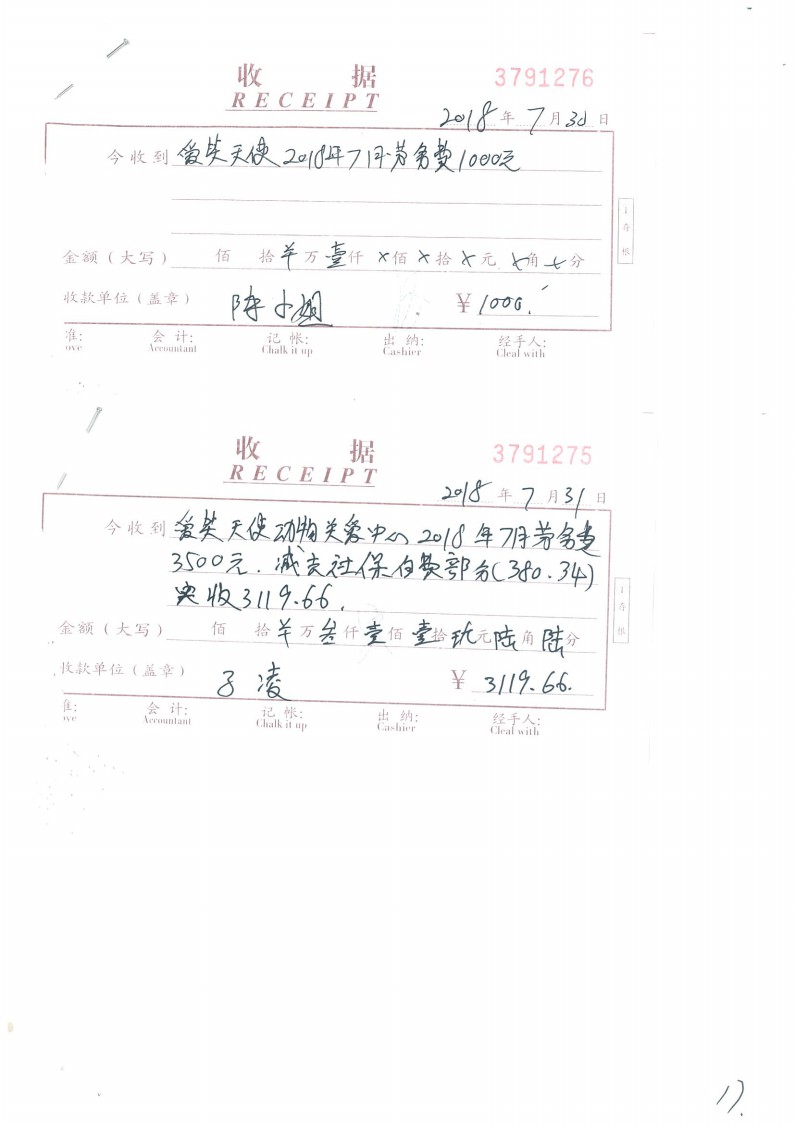 收 据 3791276
RECEIPT
2018年7月30日
今收到 爱笑天使2018年7月劳务费1000元
金额(大写) 佰 拾 羊 万 壹 仟 × 佰 × 拾 × 元 × 角 × 分
收款单位(盖章) 陈小姐 ¥1000.
准: 会计: 记帐: 出纳: 经手人:
ove Accountant Chalk it up Cashier Cleal with
收 据 3791275
RECEIPT
2018年7月31日
今收到 爱笑天使动物关爱中心2018年7月劳务费
3500元.减去社保自费部分(380.34)
实收3119.66.
金额(大写) 佰 拾 羊 万 叁 仟 壹 佰 壹 拾 玖 元 陆 角 陆 分
收款单位(盖章) 子凌 ¥ 3119.66.
准: 会计: 记帐: 出纳: 经手人:
ove Accountant Chalk it up Cashier Cleal with
17.